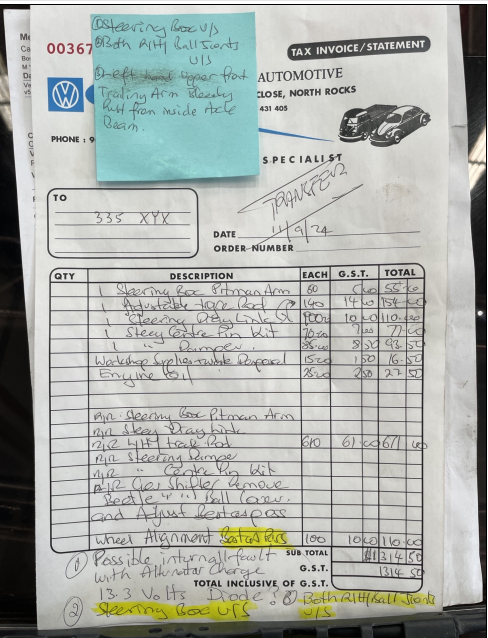 ① Steering Box U/S
② Both R/H/ Ball Joints
U/S
③ Left upper front
Trailing Arm
from inside Axle
Beam.
00367
TAX INVOICE/STATEMENT
AUTOMOTIVE
CLOSE, NORTH ROCKS
431 405
PHONE : 9
SPECIALIST
TO
335 XYX
TRANSFER
DATE 11/9/24
ORDER NUMBER
QTY DESCRIPTION EACH G.S.T. TOTAL
1 Steering Box Pitman Arm
1 Adjustable Trac Rod 140 14 00 154 00
1 Steering Drag Link 10 00 110.00
1 Steey Centre Pin Kit 77.00
1 " Damper. 8 50 93.50
Workshop Supplies + waste Disposal 15.00 1 50 16.50
Engine Oil 25.00 2 50 27 50
R/R Steering Box Pitman Arm
R/R Steey Drag Link
R/R L/H/ track Rod 610 61.00 671 00
R/R Steering
R/R " Centre Pin Kit
R/R Gear Shifter Remove
Beetle
and Adjust
Wheel Alignment 100 10 00 110.00
SUB TOTAL $1314 50
G.S.T. 1314 50
TOTAL INCLUSIVE OF G.S.T.
① Possible internal fault
with Alternator Charge
13.3 Volts Diode?
② Steering Box U/S
③ Both R/H/ Ball Joints
U/S